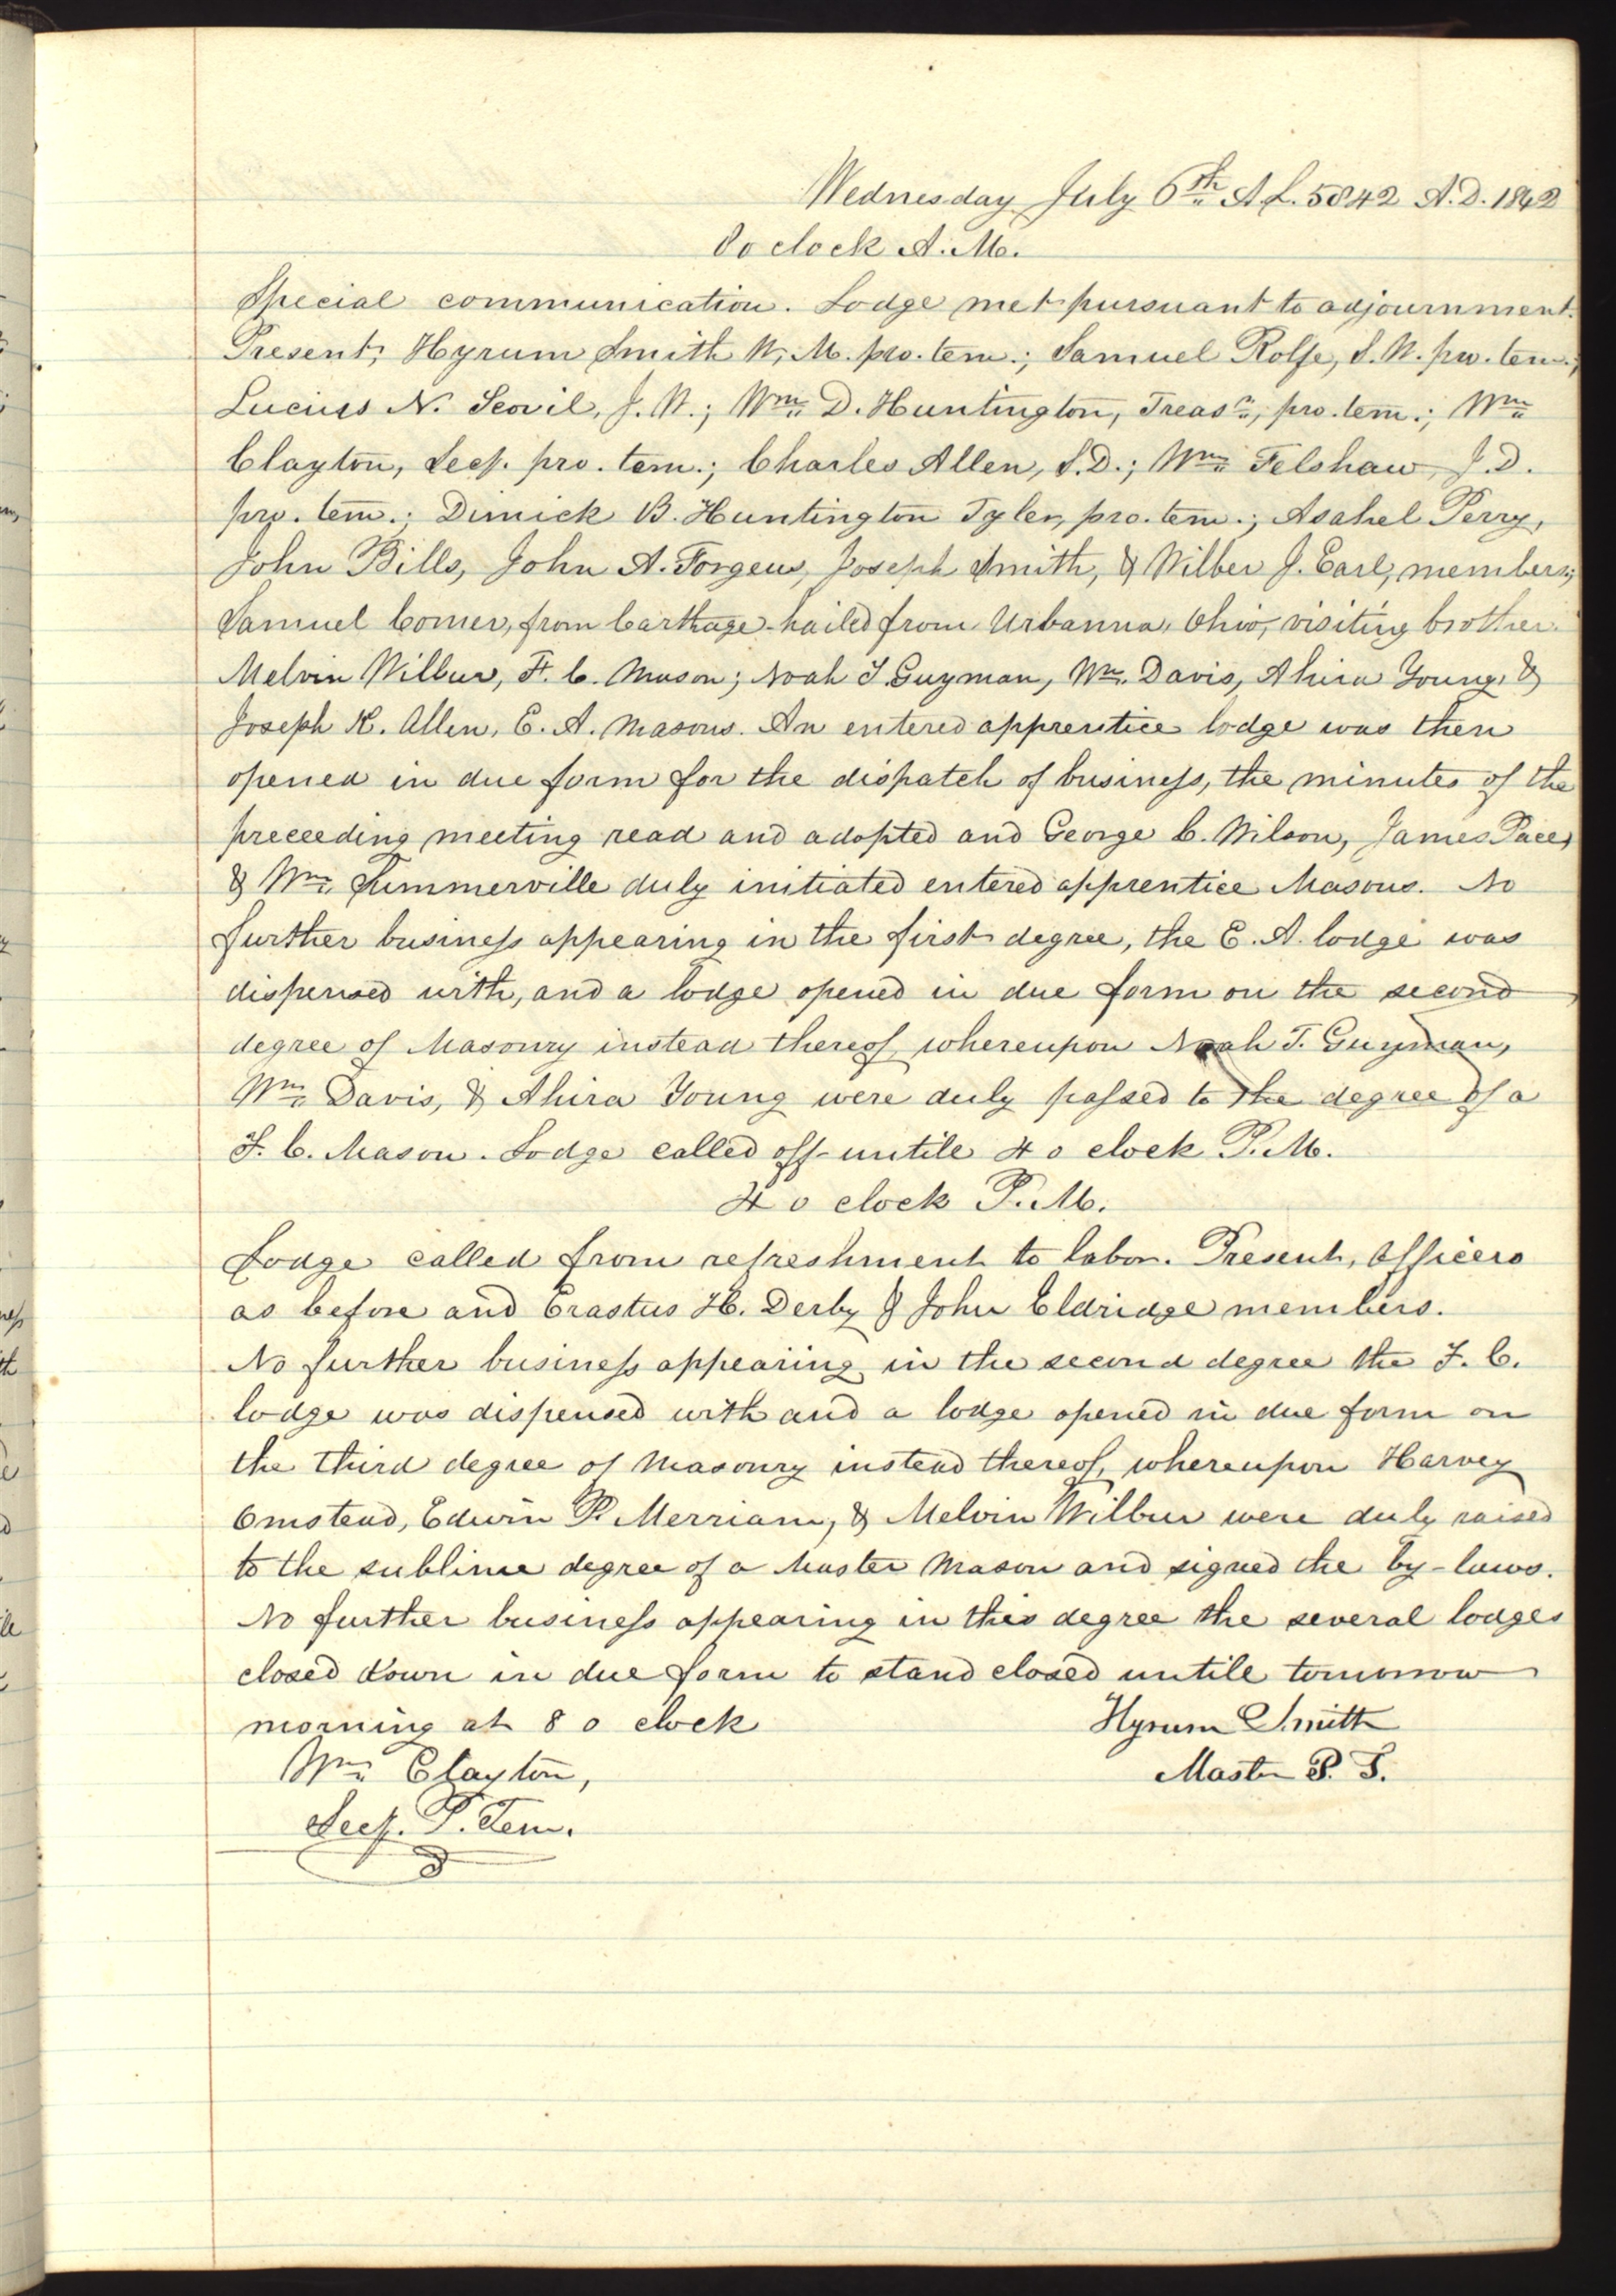 Wednesday July 6th A.L. 5842 A.D. 1842
8 o clock A.M.
Special communication. Lodge met pursuant to adjournment.
Present, Hyrum Smith W. M. pro. tem.; Samuel Rolfe, S. W. pro. tem.;
Lucius N. Scovil, J. W.; Wm. D. Huntington, Treasr., pro. tem.; Wm.
Clayton, Secy. pro. tem.; Charles Allen, S.D.; Wm. Felshaw, J.D.
pro. tem.; Dimick B. Huntington Tyler, pro. tem.; Asahel Perry,
John Bills, John A. Forgeus, Joseph Smith, & Wilber J. Earl, members;
Samuel Comer, from Carthage hailed from Urbanna, Ohio, visiting brother.
Melvin Wilbur, F. C. Mason; Noah T. Guyman, Wm. Davis, Ahira Young, &
Joseph K. Allen, E. A. Masons. An entered apprentice lodge was then
opened in due form for the dispatch of business, the minutes of the
preceeding meeting read and adopted and George C. Wilson, James Pace,
& Wm. Summerville duly initiated entered apprentice Masons. No
further business appearing in the first degree, the E. A. lodge was
dispensed with, and a lodge opened in due form on the second
degree of Masonry instead thereof, whereupon Noah T. Guyman,
Wm. Davis, & Ahira Young were duly passed to the degree of a
F. C. Mason. Lodge called off untile 4 o clock P.M.
4 o clock P.M.
Lodge called from refreshment to labor. Present, Officers
as before and Erastus H. Derby & John Eldridge members.
No further business appearing in the second degree the F. C.
lodge was dispensed with and a lodge opened in due form on
the third degree of Masonry instead thereof, whereupon Harvey
Omstead, Edwin P. Merriam, & Melvin Wilbur were duly raised
to the sublime degree of a Master Mason and signed the by-laws.
No further business appearing in this degree the several lodges
closed down in due form to stand closed untile tomorrow
morning at 8 o clock
Hyrum Smith
Wm. Clayton,
Master P. T.
Secy. P. Tem.